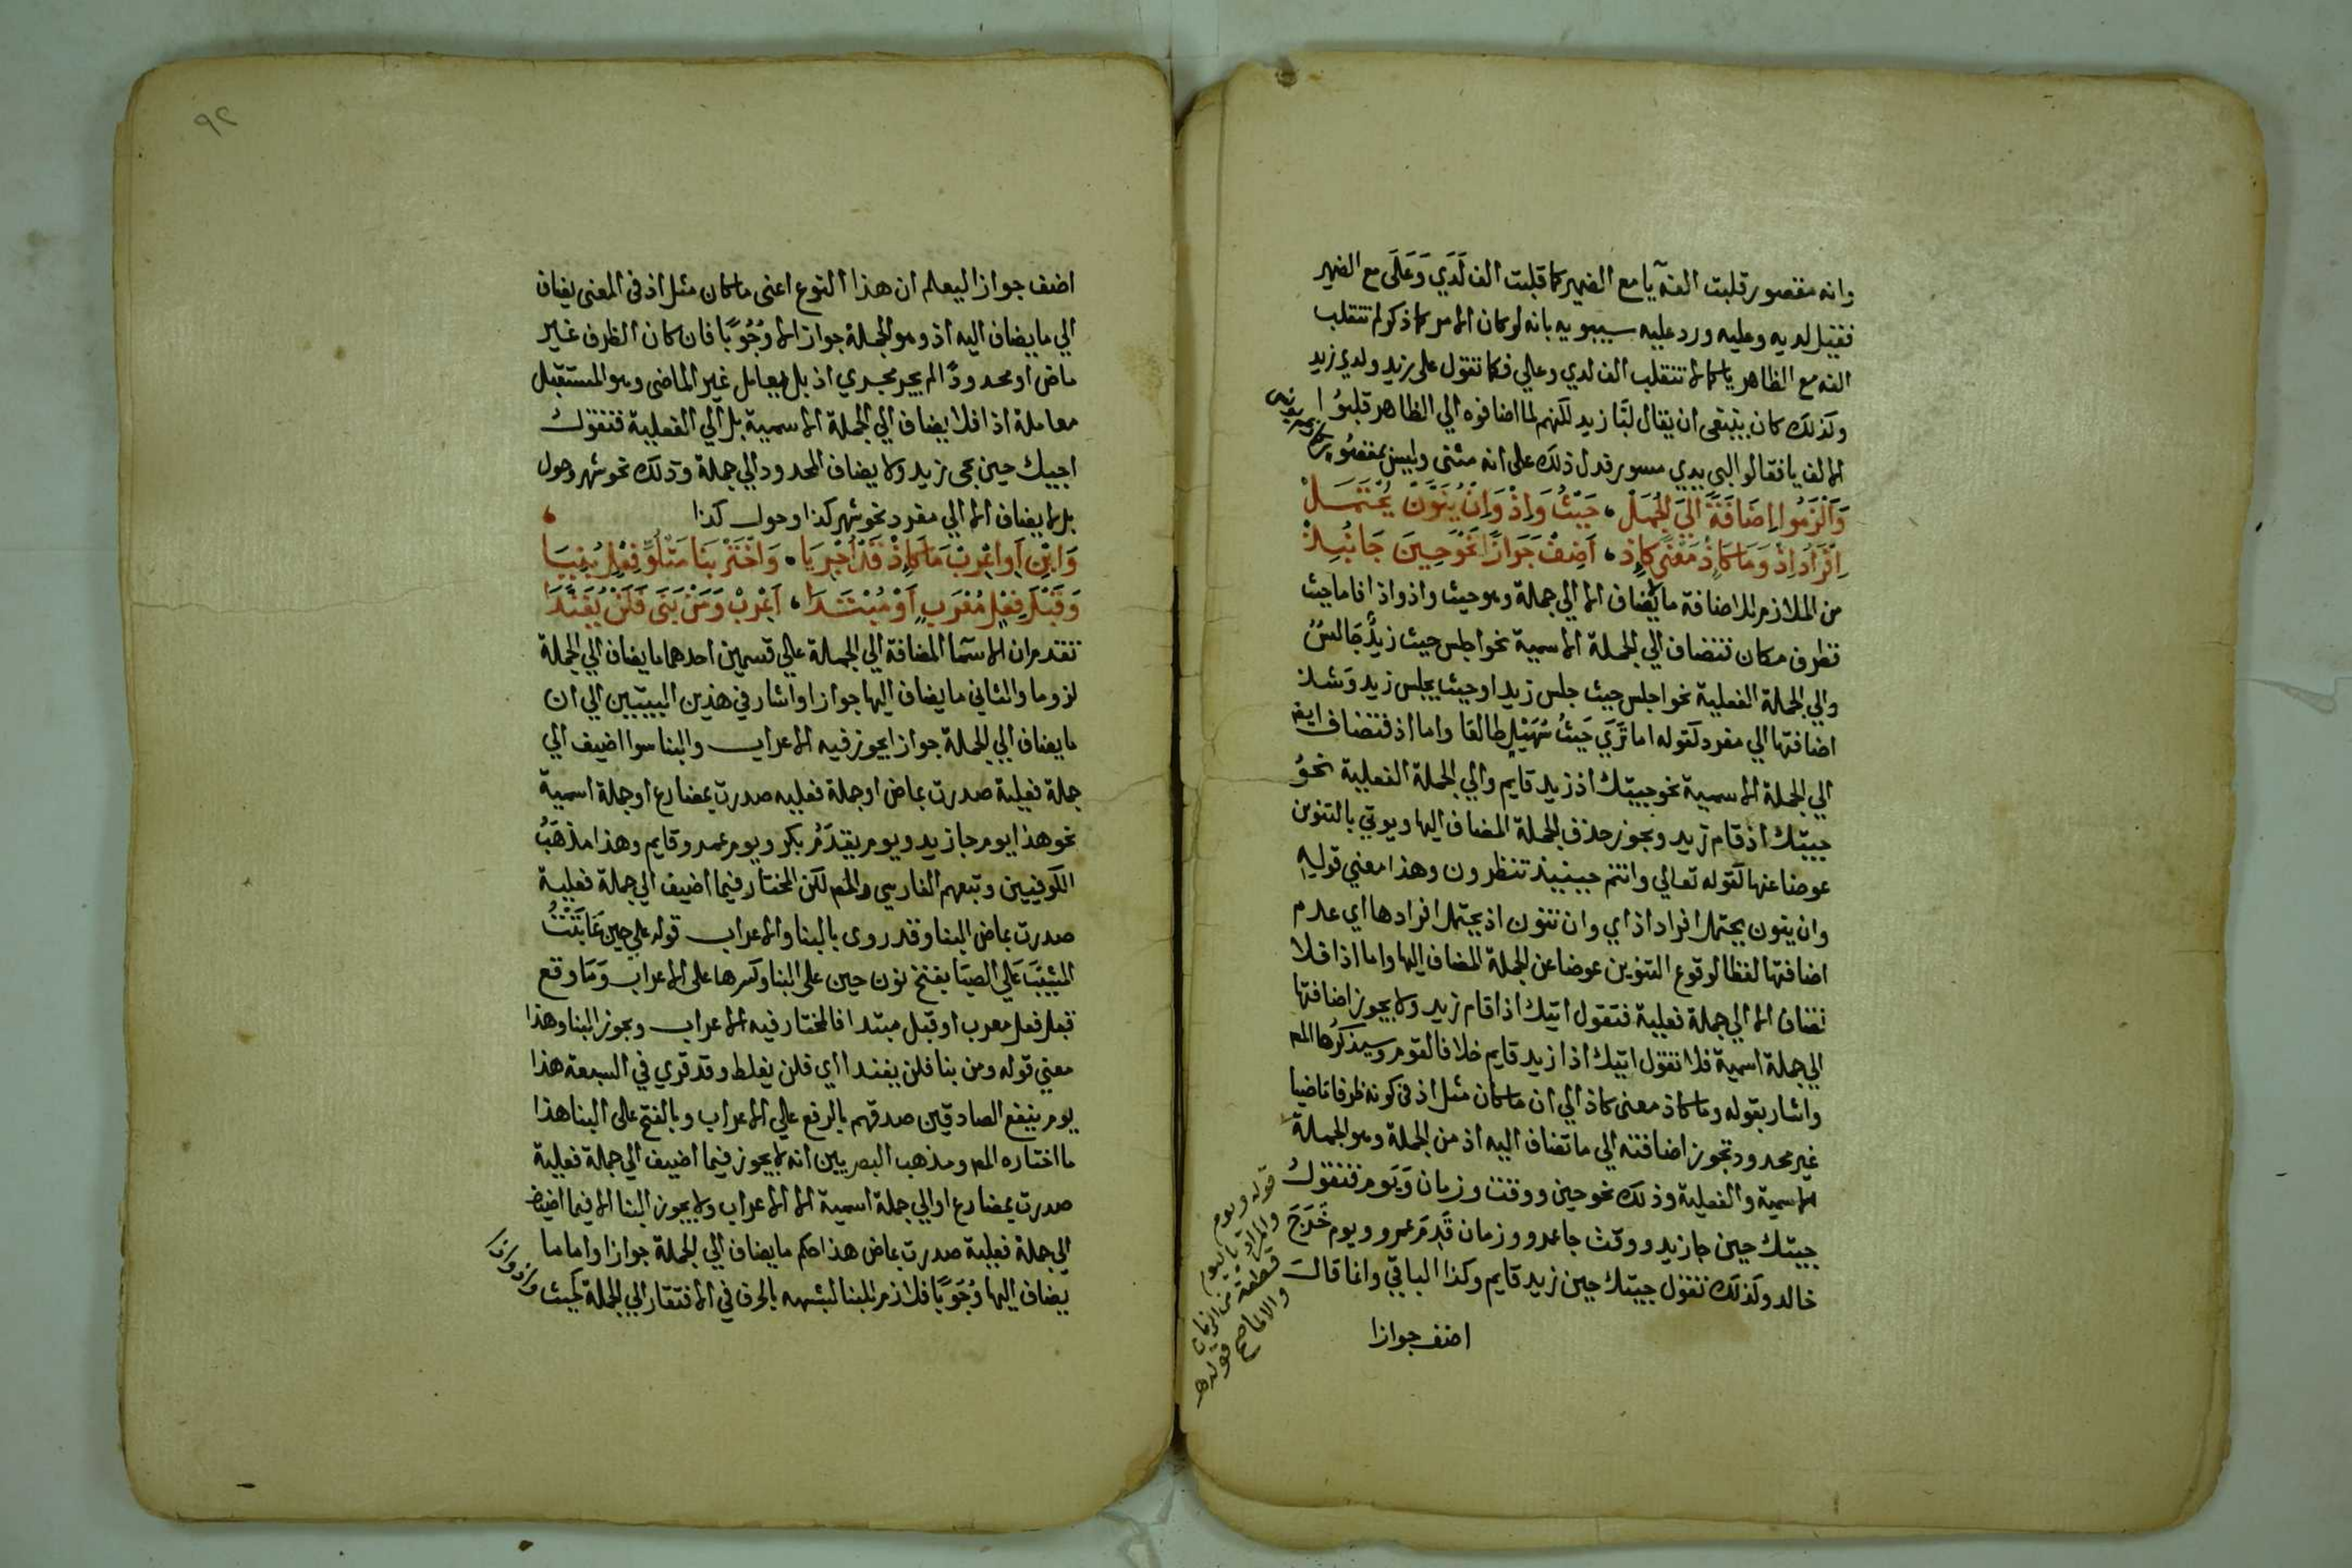 وانه مقصور قلبت الفه يا مع الضمير كما قلبت الف لَدَي وَعَلَى مع الضمير
فقيل لديه وعليه ورد عليه سيبويه بانه لو كان الامر كما ذكر لم تنقلب
الفه مع الظاهر يا كما لا تنقلب الف لدي وعلي فكما تقول على زيد ولدي زيد
وكذلك كان ينبغى ان يقال لبَّا زيد لكنهم لما اضافوه الي الظاهر قلبوُا
الالف يا فقالوا لبي يدي مسور فدل ذلك على انه مثنى وليس بمقصُور
وَاَلْزَمُوا اِضَافَةً اِلَيَ الجُمَلْ، حَيْثُ وَاِذْ وَاِنْ يُنَوَّنْ يُحْتَمَلْ
اِفْرَادُ اِذْ وَمَا كَاِذْ مَعْنًى كَاِذ، اَضِفْ جَوَازًا نَحْوَ حِينَ جَا نُبِذْ
من الملازم للاضافة ما لا يُضاف الا الي جملة وهو حيث واذ واذا فاما حيث
فظرف مكان تتضاف الي الجملة الاسمية نحو اجلس حيث زيدٌ جَالسٌ
والي الجملة الفعلية نحو اجلس حيث جلس زيد او حيث يجلس زيد وَشذ
اضافتها الي مفرد كقوله اما تَرَي حَيثُ سُهَيْلٍ طالعا واما اذ فتضاف ايضا
الي الجملة الاسمية نحو جيتك اذ زيد قايم والي الجملة الفعلية نحوُ
جيتك اذ قام زيد ويجوز حذف الجملة المضاف اليها ويوتي بالتنوين
عوضا عنها كقوله تعالي وانتم حينيذ تنظرون وهذا معني قوليه
وان ينون يحتمل افراد اذ اي وان تنون اذ يحتمل افرادها اي عدم
اضافتها لفظا لوقوع التنوين عوضا عن الجملة المضاف اليها واما اذا فلا
تضاف الا الي جملة فعلية فتقول اتيك اذا قام زيد ولا يجوز اضافتها
الي جملة اسمية فلا تقول اتيك اذا زيد قايم خلافا لقوم وسيذكرُها المص
واشار بقوله وما كاذ معنى كاذ الي ان ما كان مثل اذ فى كونه ظرفا ماضيا
غير محدود تجوز اضافته الي ما تضاف اليه اذ من الجملة وهو الجملة
الاسمية والفعلية وذلك نحو حين ووقت وزمان وَيَوم فتقولُ
جيتك حين جا زيد ووقت جا عمرو وزمان قَدِمَ عمرو ويوم خَرَجَ
خالد وكذلك تقول جيتك حين زيد قايم وكذا الباقي وانما قالَ
اضف جوازا
قوله ويوم
والمراد باليوم
قطعة من الزمان
٩٢
اضف جوازا ليعلم ان هذا النوع اعنى ما كان مثل اذ فى المعنى يضاف
الي ما يضاف اليه اذ وهو الجملة جوازا لا وُجُوبًا فان كان الظرف غير
ماض او محدودًا لم يجر مجري اذ بل يعامل غير الماضى وهو المستقبل
معاملة اذا فلا يضاف الي الجملة الاسمية بل الي الفعلية فتقولُ
اجيك حين يجى زيد ولا يضاف المحدود الي جملة وذلك نحو شهر وحول
بل لا يضاف الا الي مفرد نحو شهر كذا وحول كذا
وَابْنِ اَوِ اعْرِبْ مَا كَاِذْ قَدْ اُجْرِيَا، وَاخْتَرْ بِنَا مَتْلُوِّ فِعْلٍ بُنِيَا
وَقَبْلَ فِعْلٍ مُعْرَبٍ اَوْ مُبْتَدَا، اَعْرِبْ وَمَنْ بَنَى فَلَنْ يُفَنَّدَا
تقدم ان الاسمَا المضافة الي الجملة علي قسمين احدهما ما يضاف الي الجملة
لزوما والثاني ما يضاف اليها جوازا واشار في هذين البيتين الي ان
ما يضاف الي الجملة جوازا يجوز فيه الاعراب والبنا سوا اضيف الي
جملة فعلية صدرت بماض او جملة فعليه صدرت بمضارع او جملة اسمية
نحو هذا يوم جا زيد ويوم يقدَمُ بكر ويوم عمرو قايم وهذا مذهَبُ
الكوفيين وتبعهم الفارسي والمص لكن المختار فيما اضيف الي جملة فعلية
صدرت بماض البنا وقد روى بالبنا والاعراب قوله علي حين عَاتَبْتُ
المَشِيبَ عَلي الصبَا بفتح نون حين على البنا وكسرها على الاعراب وَمَا وقع
قبل فعل معرب او قبل مبتدا فالمختار فيه الاعراب ويجوز البنا وهذا
معني قوله ومن بنا فلن يفندا اي فلن يغلط وقد قري في السبعة هذا
يوم ينفع الصادقين صدقهم بالرفع علي الاعراب وبالفتح على البنا هذا
ما اختاره المص ومذهب البصريين انه لا يجوز فيما اضيف الي جملة فعلية
صدرت بمضارع او الي جملة اسمية الا الاعراب ولا يجوز البنا الا فيما اضيف
الي جملة فعلية صدرت بماض هذا حكم ما يضاف الي الجملة جوازا واما ما
يضاف اليها وُجُوبًا فلازم للبنا لشبهه بالحرف في الافتقار الي الجملة كحيث واذ واذا